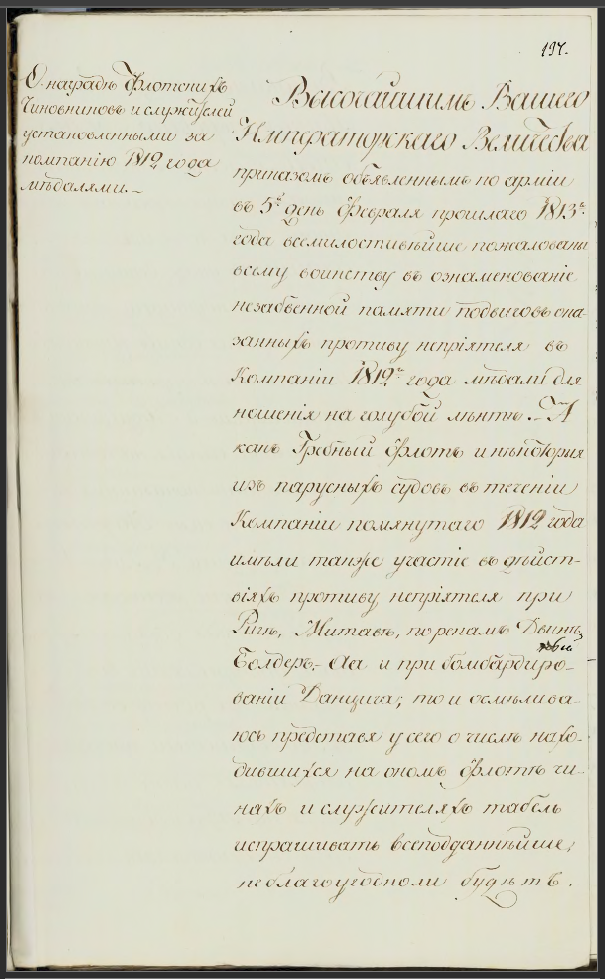 197.
О наградѣ Флотскихъ
Чиновниковъ и служителей
установленными за
компанію 1812 года
мѣдалями. –
Высочайшимъ Вашего
Императорскаго Величества
приказомъ объявленнымъ по арміи
въ 5й день Февраля прошлаго 1813го
года всемилостивѣйше пожалованы
всему воинству въ ознаменованіе
незабвенной памяти подвиговъ ока-
занныхъ противу непріятеля въ
Компаніи 1812го года мѣдали для
ношенія на голубой лѣнтѣ. – А
какъ Гребный Флотъ и нѣкоторыя
изъ парусныхъ судовъ въ теченіи
Компаніи помянутаго 1812 года
имѣли также участіе въ дѣйст-
віяхъ противу непріятеля при
Ригѣ, Митавѣ, по рекамъ Двинѣ,
Болдеръ-Аа и при бомбардиро-
ваніи Данцига; то и осмѣлива-
юсь представя у сего о числѣ нахо-
дившихся на ономъ Флотѣ чи-
нахъ и служителяхъ табель
испрашивать всеподданнѣйше,
не благоугодноли будетъ.